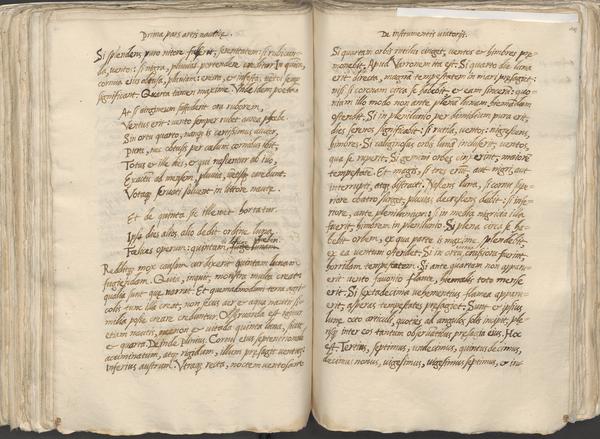 Prima pars artis nautice.
Si splendens puro nitore fulserit, serenitatem: si rubicun-
da, ventos: si nigra, pluvias portendere creditur. In quinta,
cornua eius obtusa, pluviam: erecta, et infesta, ventos semper
significant. Quarta tamen maxime. Unde idem poeta.
At si virgineum suffuderit ore ruborem,
Ventus erit: vento semper rubet aurea phoebe.
Sin ortu quarto, namque is certissimus auctor,
Pura, nec obtusis per coelum cornibus ibit,
Totus et ille dies, et qui nascentur ab illo,
Exactum ad mensem, pluvia, ventisque carebunt.
Votaque servati solvent in littore nautae.
Et de quinta se illi
Ipsa dies alios alio dedit ordine luna,
Felices operum: quintam fuge
Reddit mox causam cur dixerit quintam lunam
fugiendam. Quia, inquit, monstra multa creat:
qualia sunt que narrat.
et quarta. Deinde plinius. Cornu eius septentrionale
acuminatum, atque rigidum, illum presagit ventum:
inferius austrum. Utraque recta, noctem ventosam.
De instrumentis viatorijs.
Si quartam orbis rutilus cinget, ventos et himbres pre-
monebit. Apud Varronem ita est: Si quarto die luna
erit directa, magnam tempestatem in mari presagiet:
nisi si coronam circa se habebit, et eam sinceram: quo-
niam illo modo non ante plenam lunam hiematurum
ostendit. Si in plenilunio per dimidium pura erit,
dies serenos significabit: si rutila, ventos: nigrescens,
himbres. Si caliginosus orbis lunam incluserit, ventos,
qua se ruperit. Si gemini orbes cinxerint, maiorem
tempestatem. Et magis, si tres erunt, aut nigri, aut
interrupti, atque distracti. Nascens luna, si cornu supe-
riore obatro surget, pluvias decrescens dabit: si infe-
riore, ante plenilunium: si in media nigritia illa
fuerit, himbrem in plenilunio. Si plena circa se ha-
bebit orbem, ex qua parte is maxime splendebit,
ex ea ventum ostendet. Si in ortu crassiora fuerint,
horridam tempestatem. Si ante quartam non appar-
erit vento favonio flante, hiemalis toto mense
erit. Si sextadecima vehementius flamea appar-
erit, asperas tempestates presagiet. Sunt et ipsius
lune octo articuli, quoties ad angulos solis incidit, ple-
risque inter eos tantum observantibus presagia eius. Hoc
est. Tertius, septimus, undecimus, quintusdecimus,
decimus nonus, vigesimus, vigesimus septimus, et in-